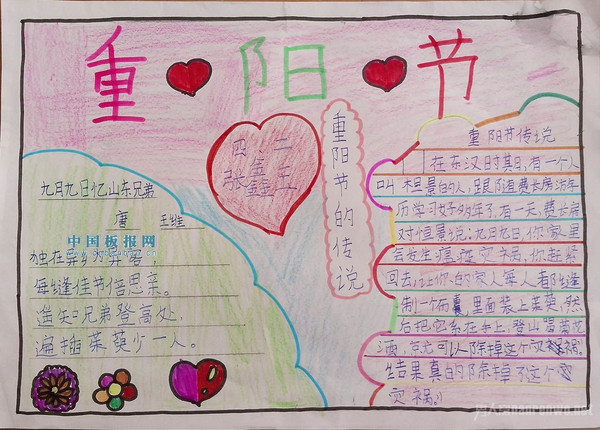 重阳节
四、二
张鑫玉
重阳节的传说
九月九日忆山东兄弟
唐 王维
独在异乡为异客
每逢佳节倍思亲。
遥知兄弟登高处
遍插茱萸少一人。
中国板报网
重阳节传说
在东汉时其月,有一个人
叫桓景的人,跟随费长房游年
历学习好多年了,有一天,费长房
对恒景说:九月九日你家里
会发生瘟疫灾祸,你赶紧
回去,让你的家人每人
制一个布囊,里面装上茱萸,然
后把它系在手上,登山喝菊花
酒,就可以除掉这个灾祸
结果真的除掉了这个
灾祸。